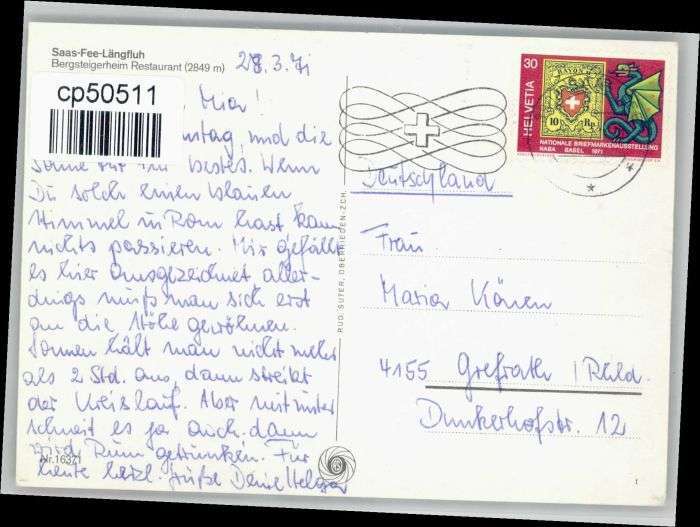 Saas-Fee-Längfluh
Bergsteigerheim Restaurant (2849 m)
28.3.71
cp50511
tag, und die
Sonne tut ihr bestes. Wenn
Du solch einen blauen
Himmel in Rom hast kann
nichts passieren. Mir gefällt
es hier ausgezeichnet aller-
dings muß man sich erst
an die Höhe gewöhnen.
Sonnen hält man nicht mehr
als 2 Std. aus, dann streikt
der Kreislauf. Aber mitunter
schneit es ja auch. dann
wird Rum getrunken. Für
heute herzl. Grüße Deine Helga
Nr. 16371
RUD. SUTER, OBERRIEDEN-ZCH.
30
HELVETIA
10 Rp.
NATIONALE BRIEFMARKENAUSSTELLUNG
NABA BASEL 1971
Deutschland
Frau
4155 Grefrath / Rhld.
Dunkerhofstr. 12
1